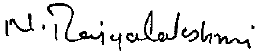 N. Raiyalakshmi